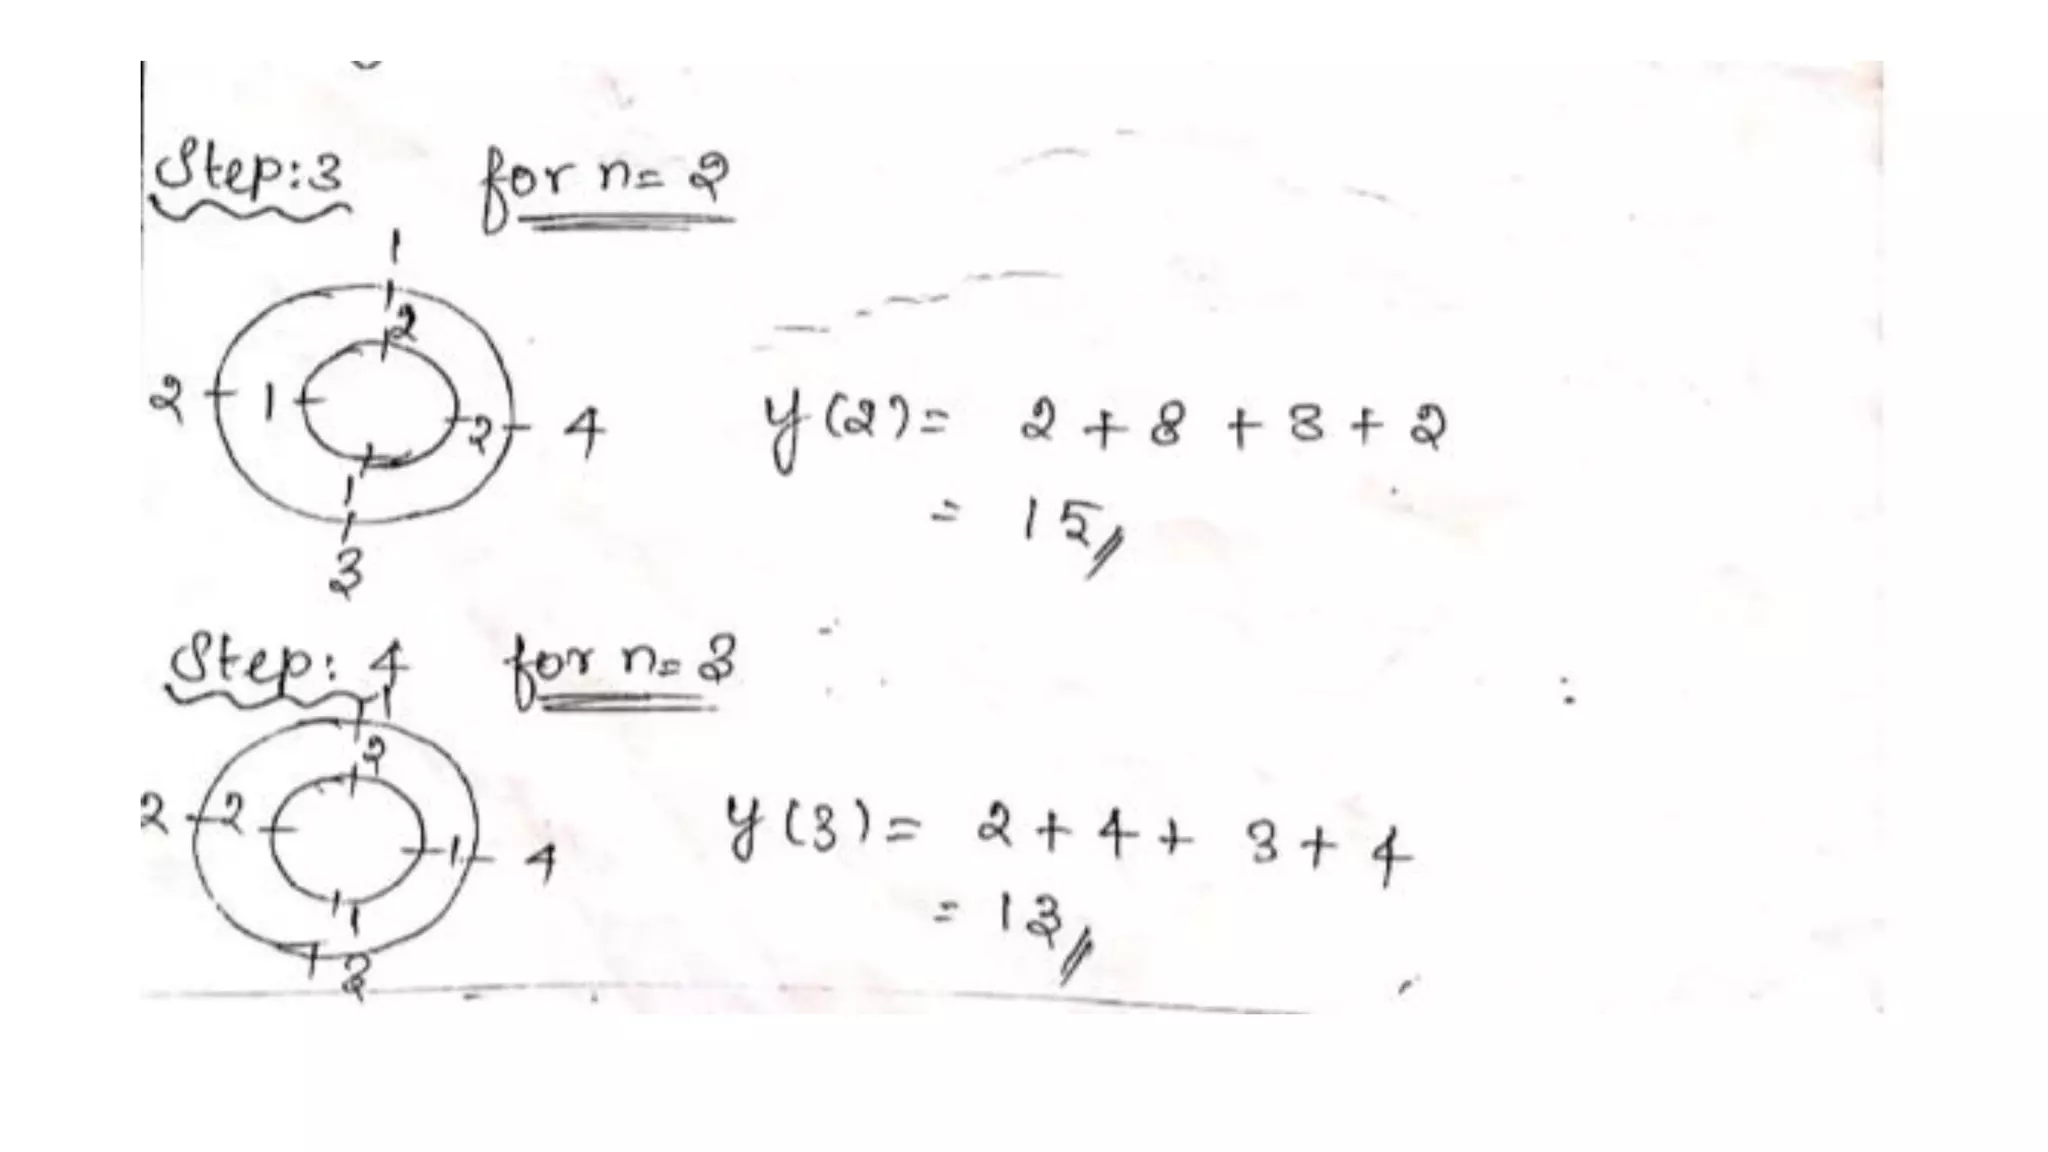 Step:3 for n= 2
1
2
2 1 2 4
1
3
y(2)= 2 + 8 + 3 + 2
= 15//
Step: 4 for n= 3
1
2
2 2 1 4
1
3
y(3)= 2 + 4 + 3 + 4
= 13//